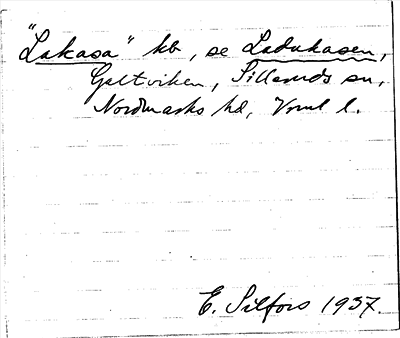 "Lakasa" kb, se Ladukasen,
Galtviken, Silleruds sn,
Nordmarks hd, Vrml l.
E. Silfors 1937.